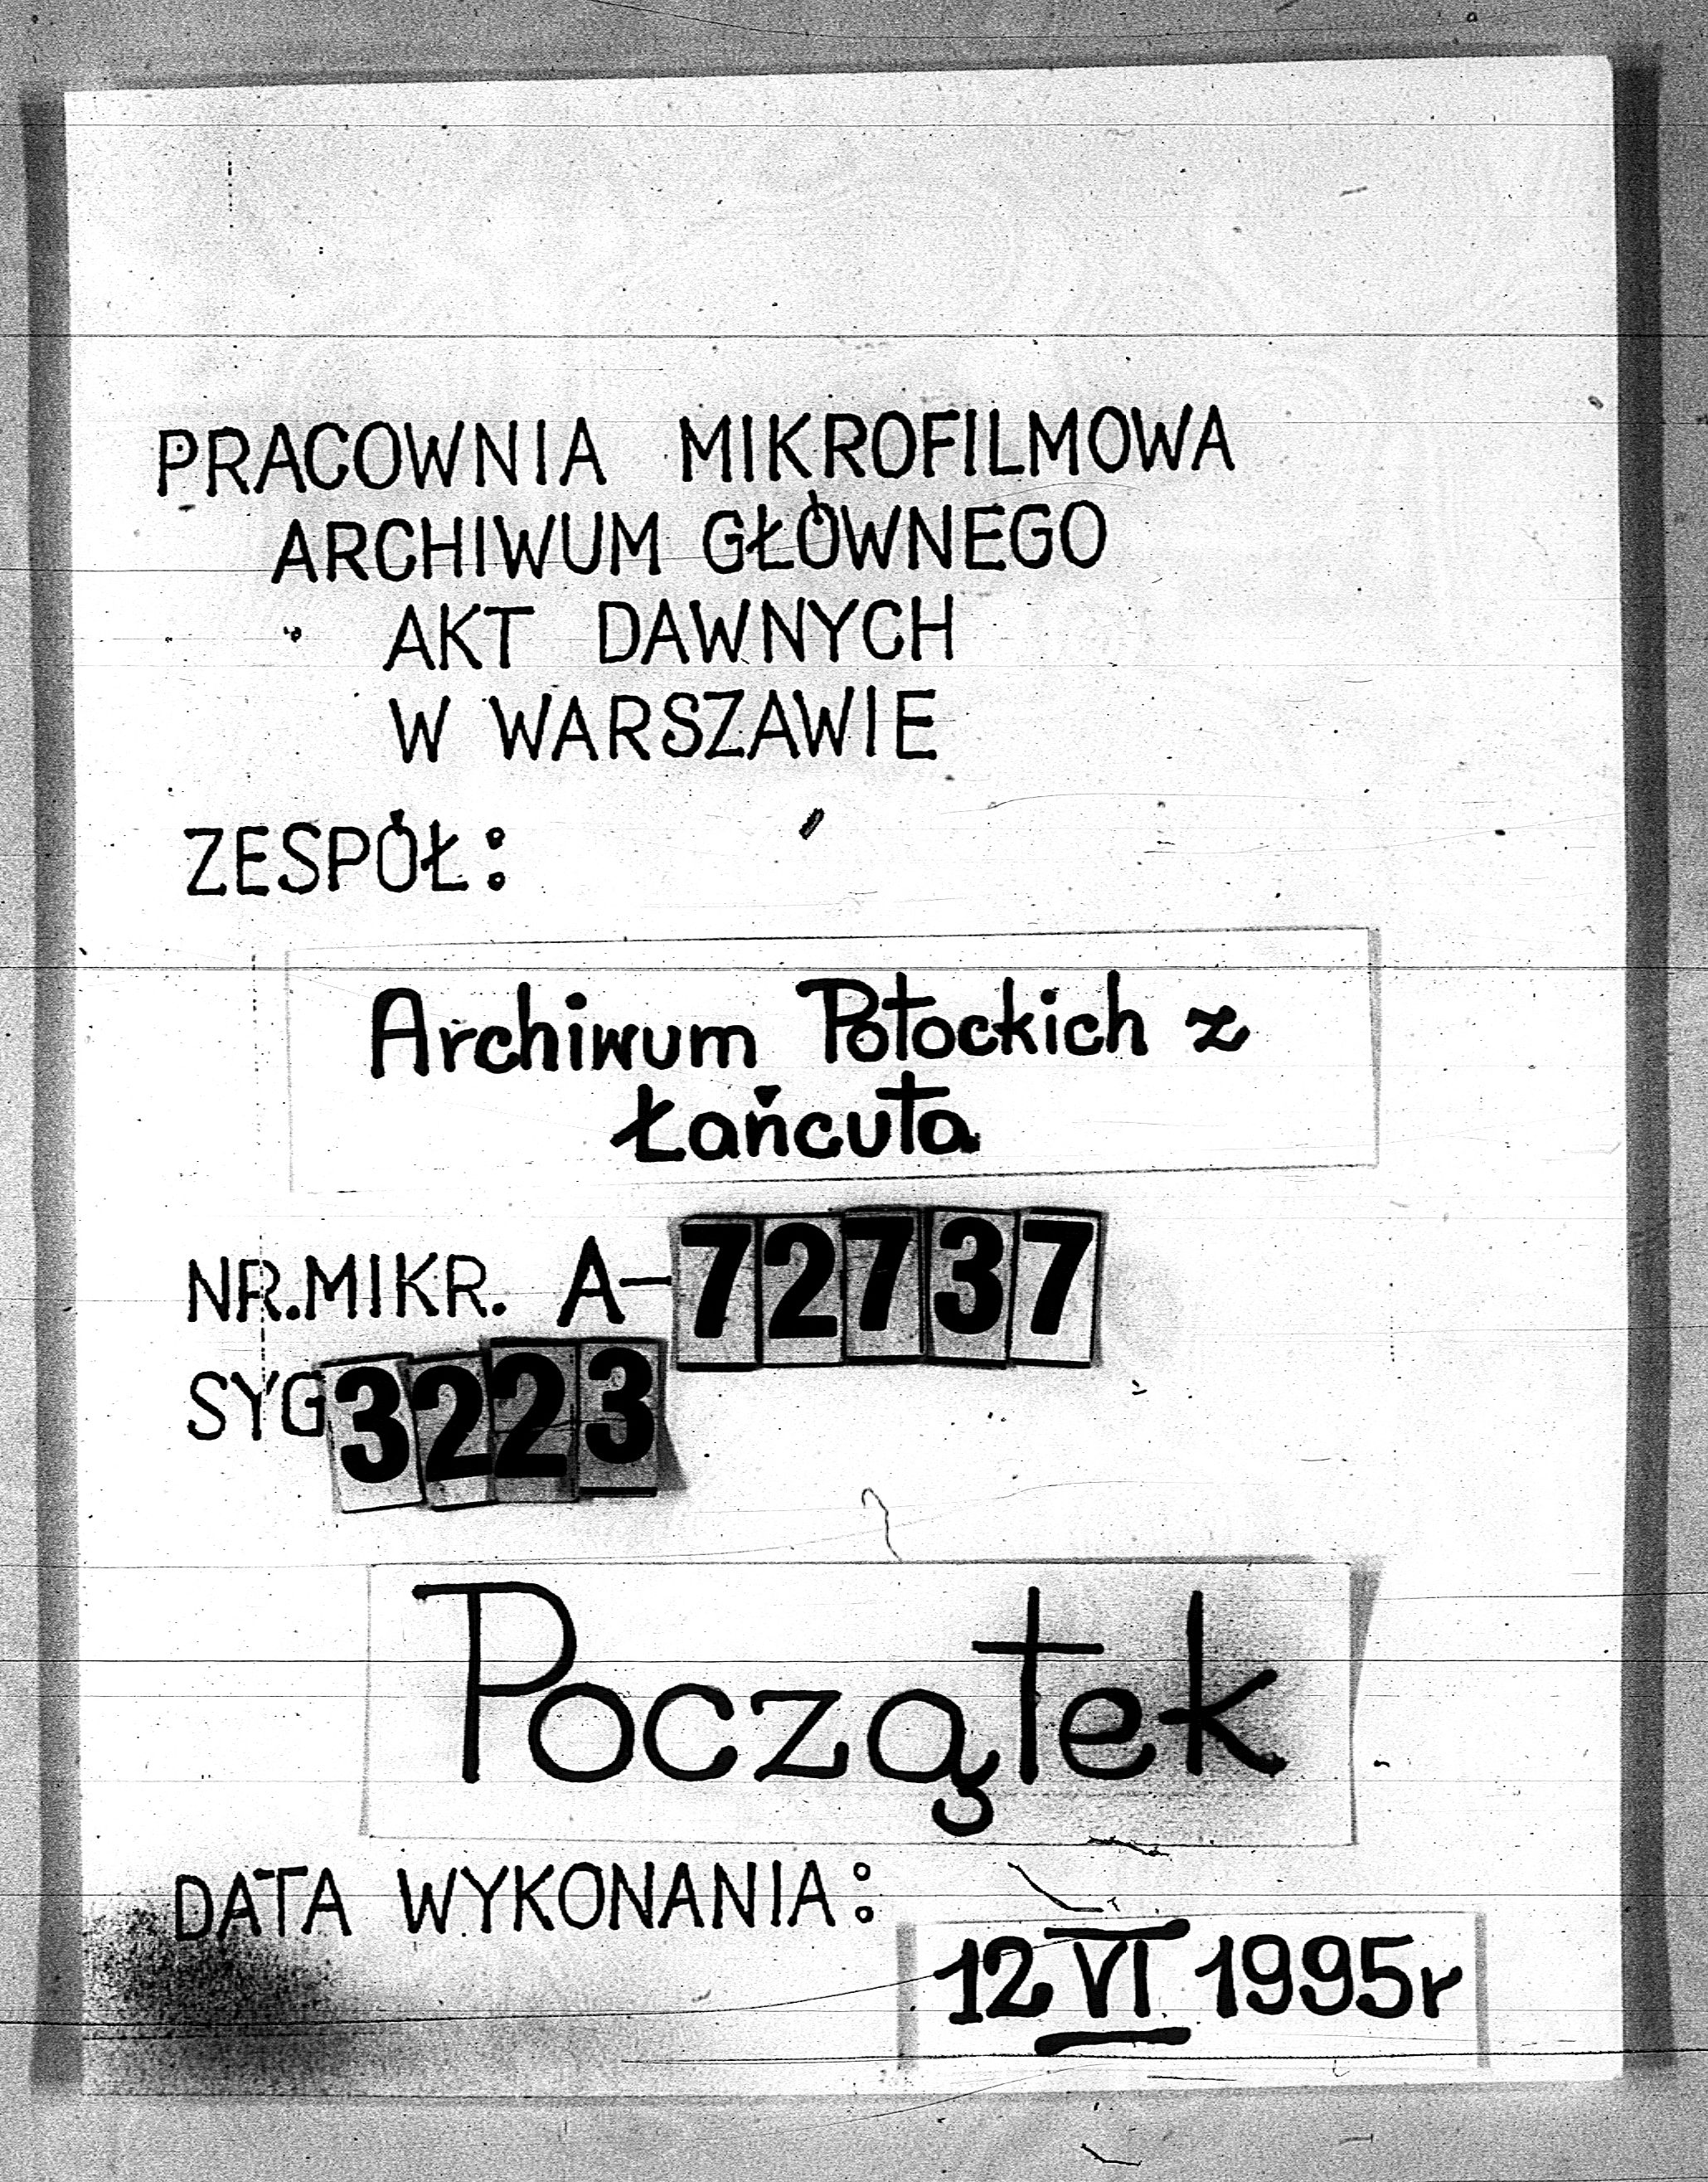 PRACOWNIA MIKROFILMOWA
ARCHIWUM GŁÓWNEGO
AKT DAWNYCH
W WARSZAWIE
ZESPÓŁ:
Archiwum Potockich z
Łańcuta
NR.MIKR. A-72737
SYG 3223
Początek
DATA WYKONANIA:
12 VI 1995r